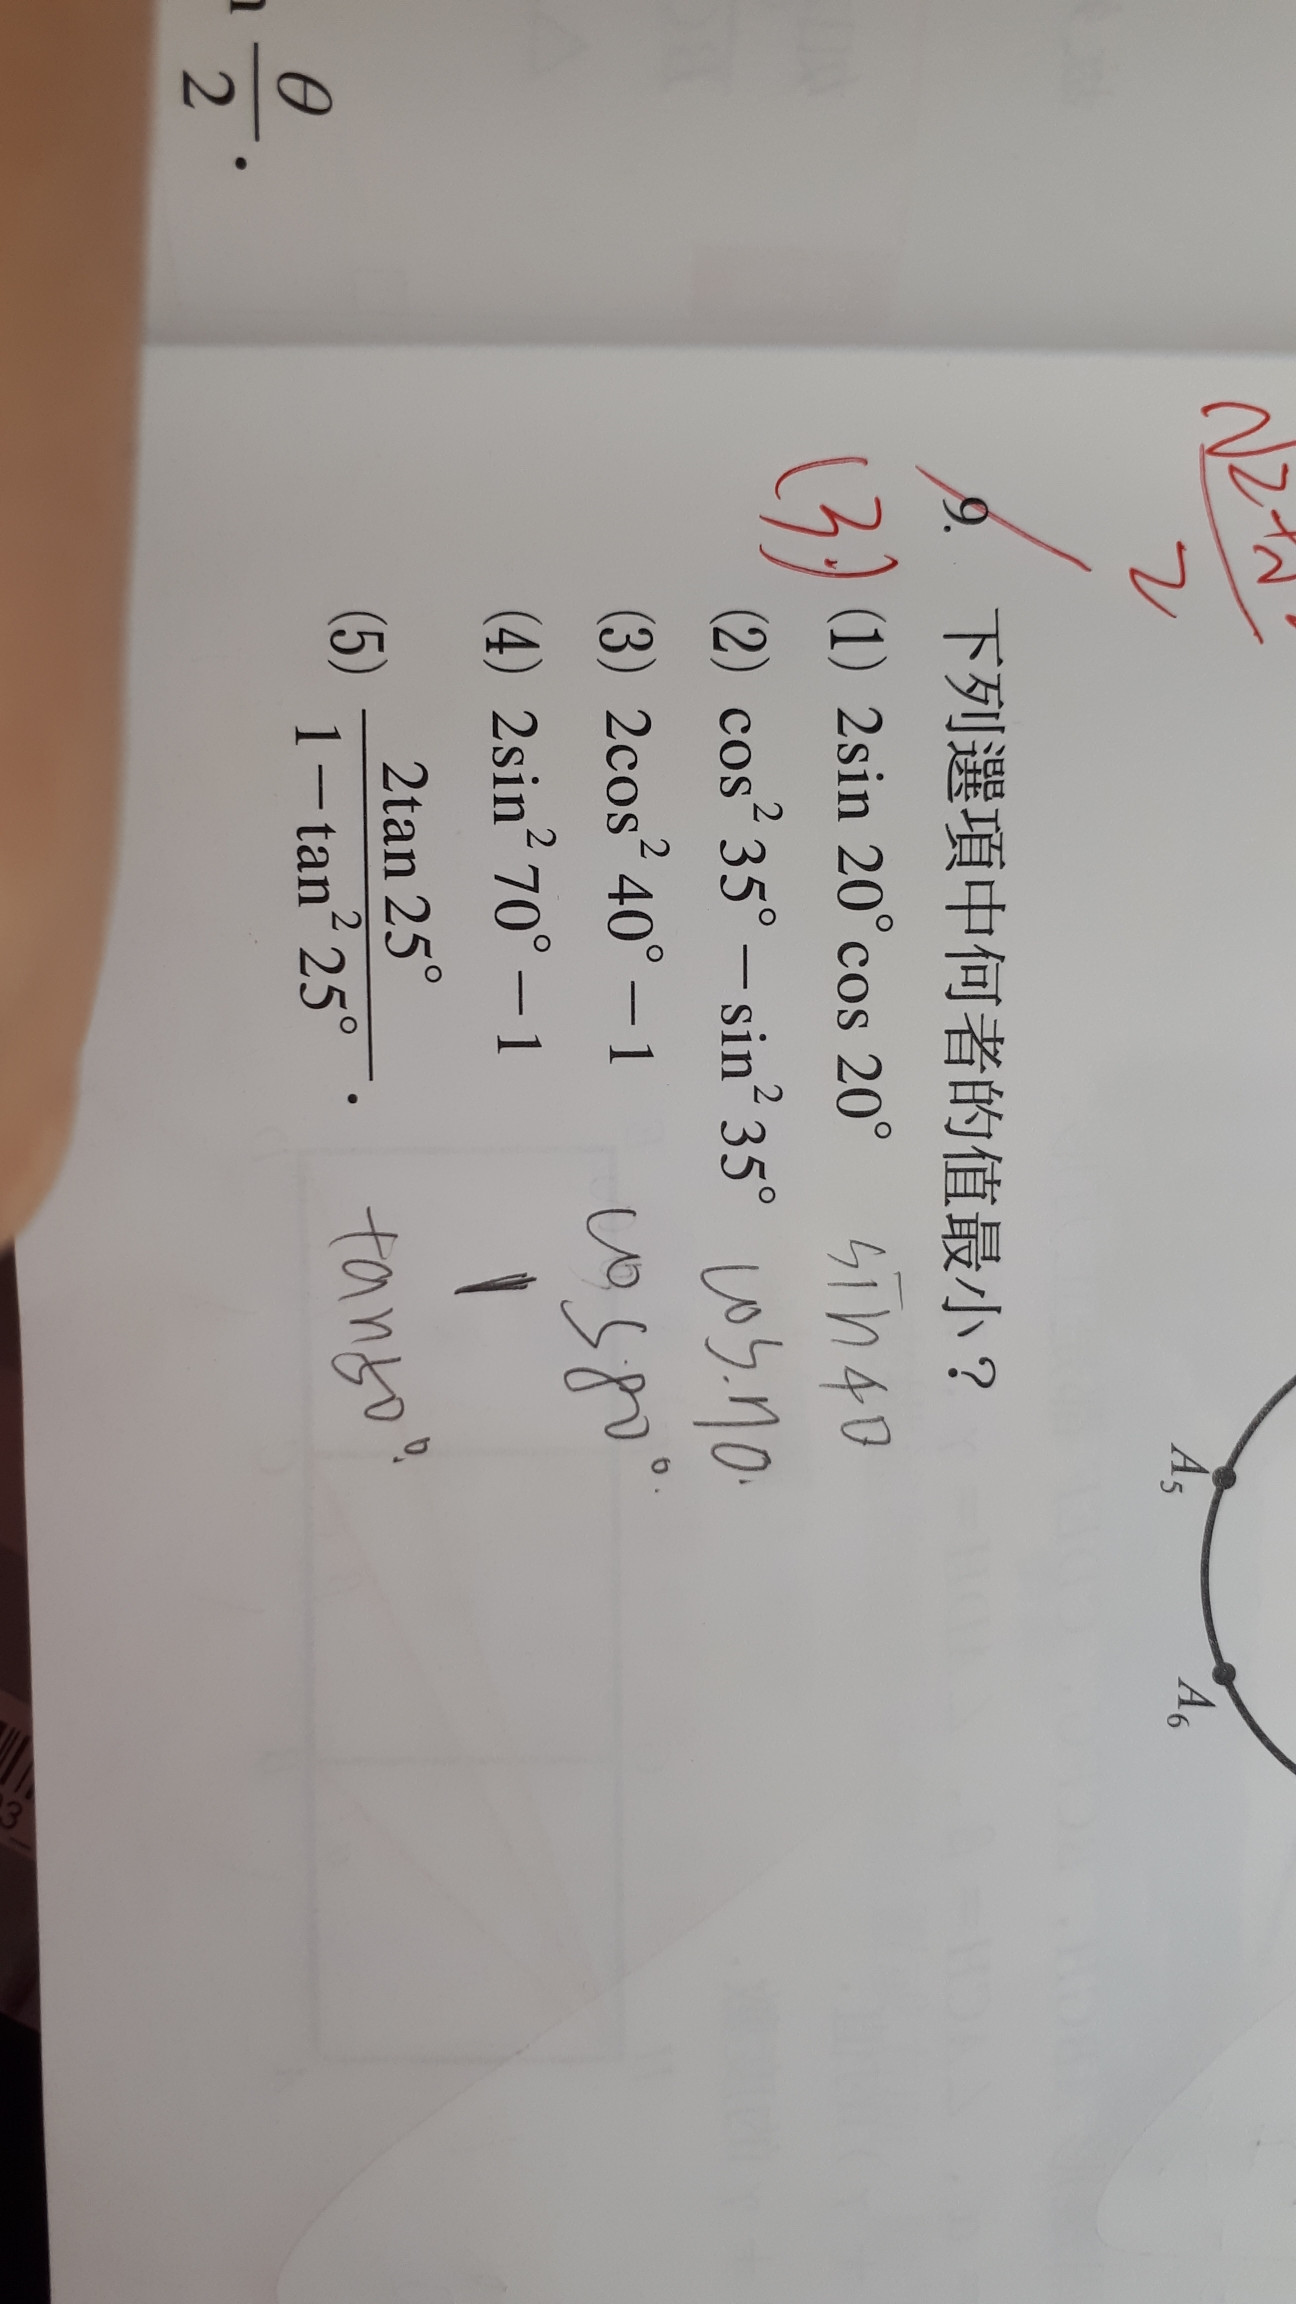 θ
2 .
√2+√2
2
9. 下列選項中何者的值最小？
(3)
(1) 2sin 20°cos 20° sin40
(2) cos²35°−sin²35° cos70
(3) 2cos²40°−1 cos80°
(4) 2sin²70°−1
(5) 2tan 25°
1−tan²25° . tan50°
A₅
A₆